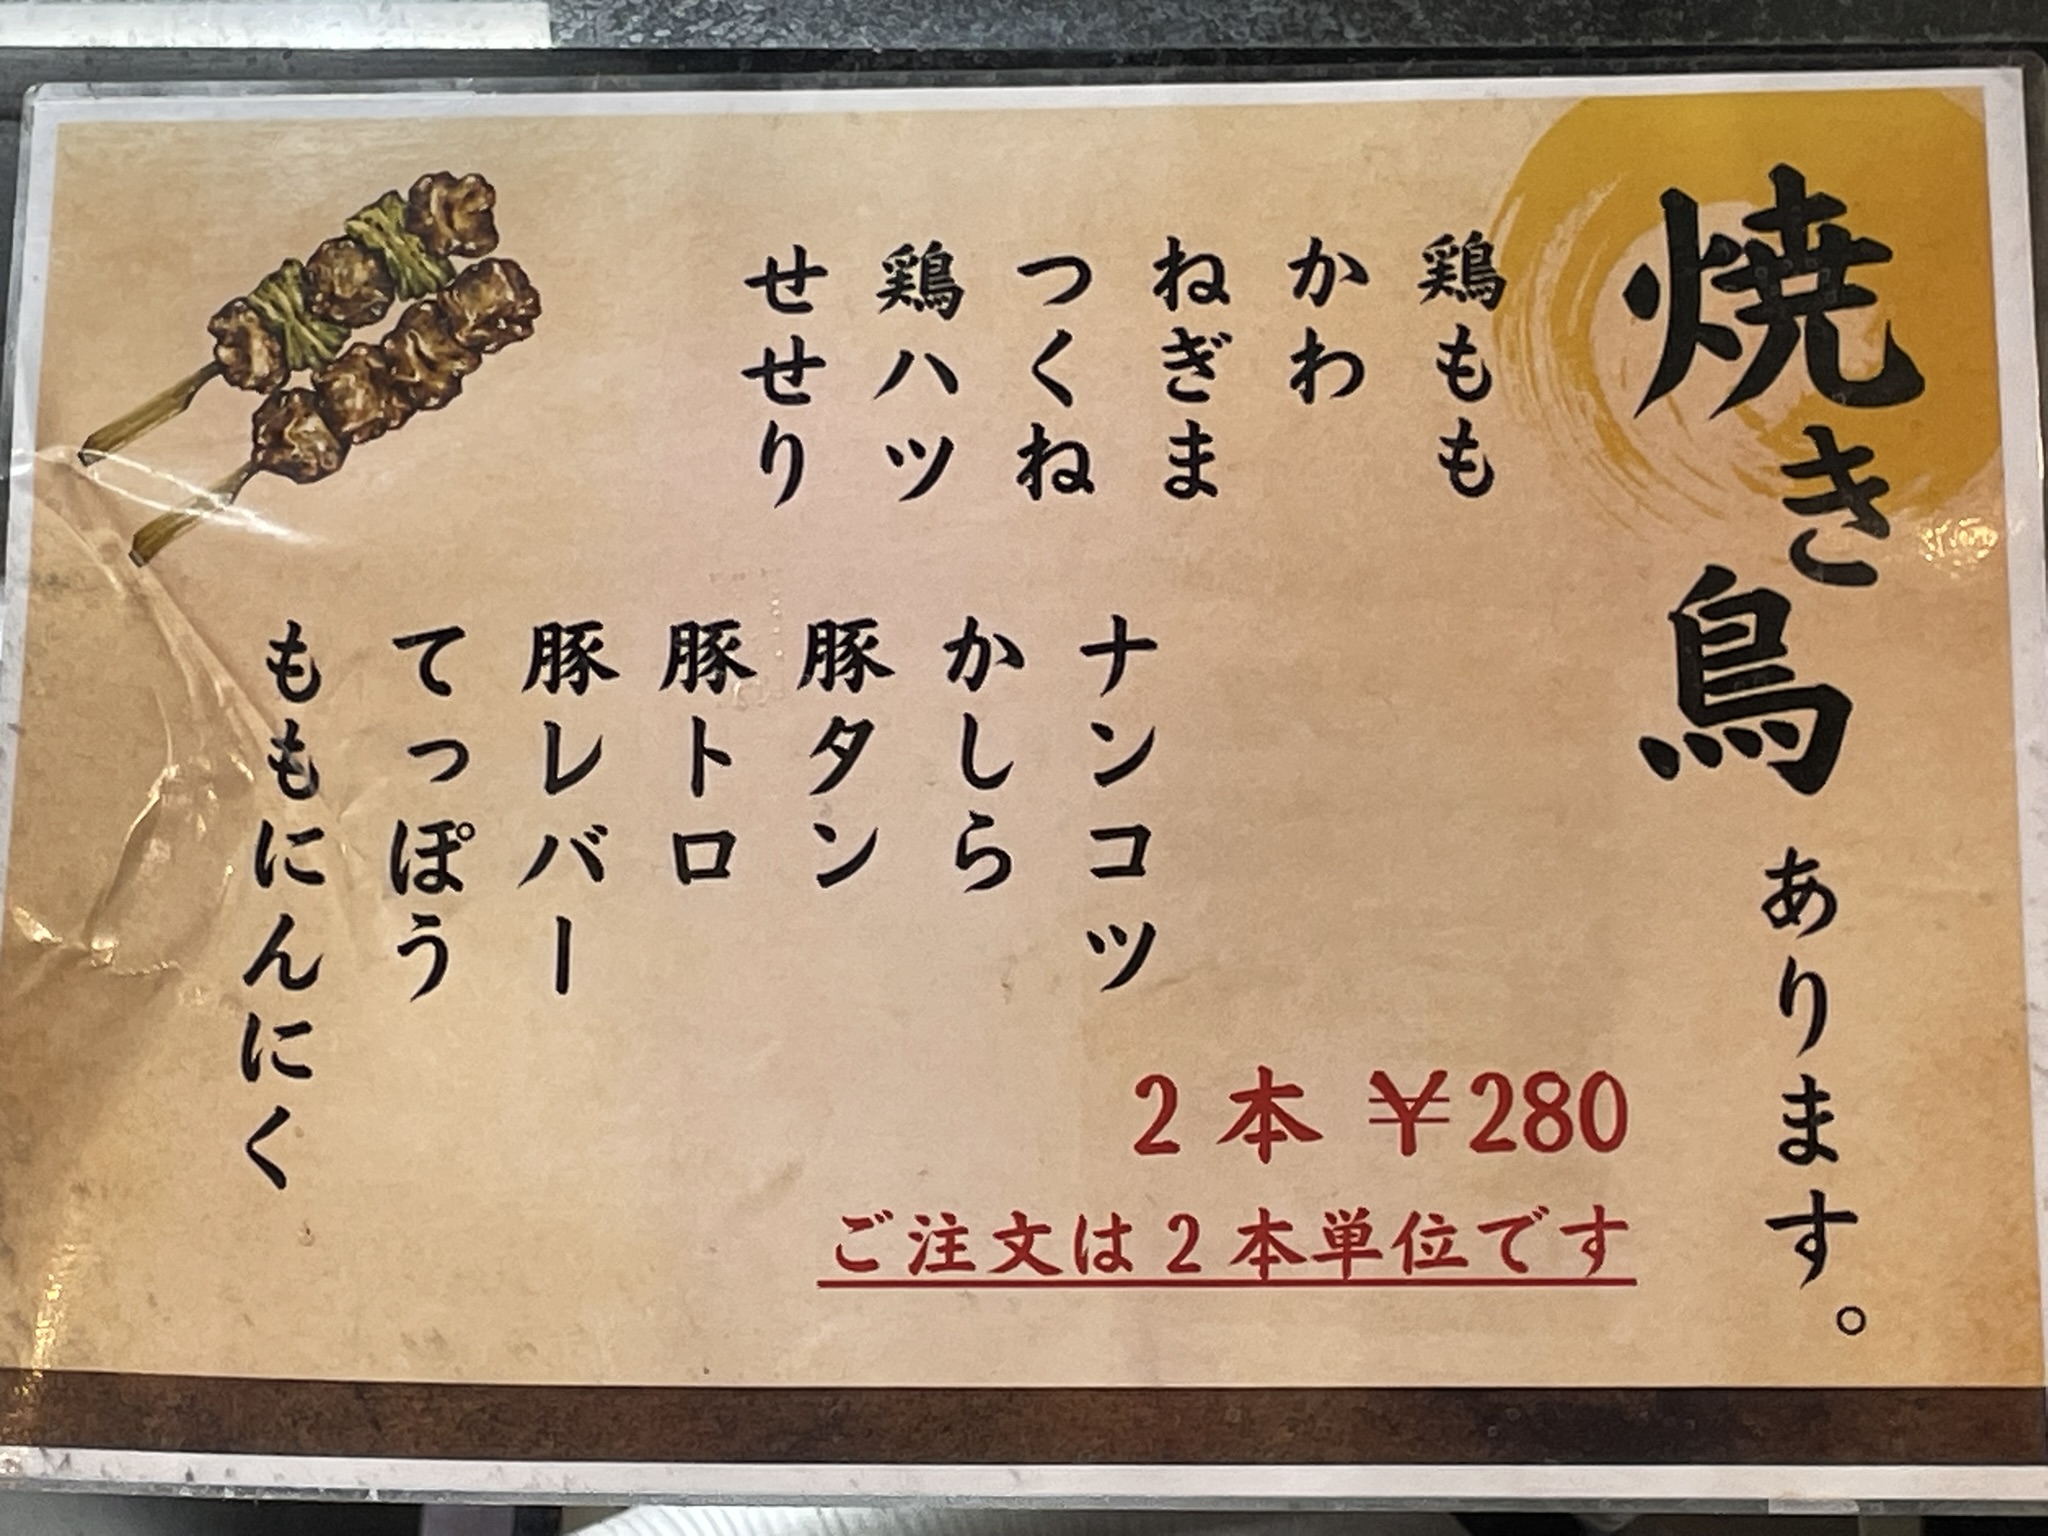 焼き鳥あります。
鶏もも
かわ
ねぎま
つくね
鶏ハツ
せせり
ナンコツ
かしら
豚タン
豚トロ
豚レバー
てっぽう
ももにんにく
2本 ¥280
ご注文は2本単位です